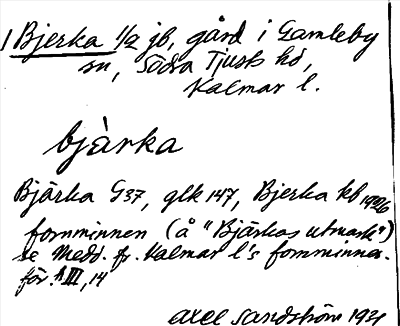 1 Bjerka 1/2 jb, gård i Gamleby
sn, Södra Tjusts hd,
Kalmar l.
bjärka
Bjärka G37, glk 147, Bjerka kb
fornminnen (å "Bjärkas utmark")
se Medd. fr. Kalmar l's fornminne.
för. III, 14
Axel Sandström 1931